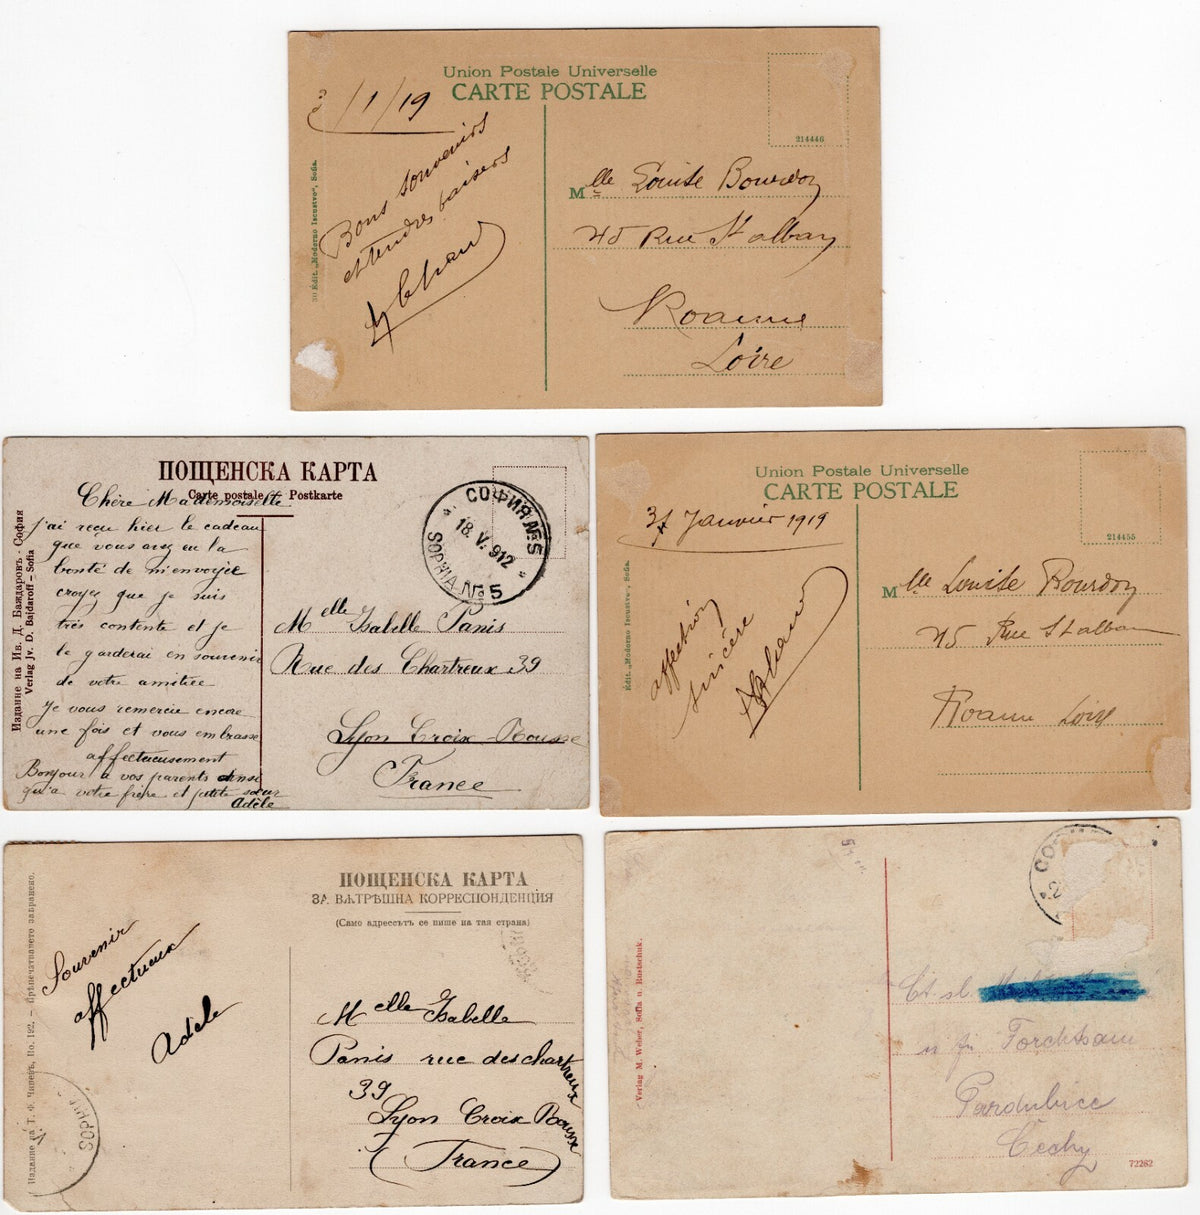 Union Postale Universelle
CARTE POSTALE
3/1/19
Bons souvenirs
et tendres baisers
214446
30 Édit. „Moderno Iscustvo“, Sofia.
Mlle Louise Bourdon
45 Rue St alban
Roanne
Loire
ПОЩЕНСКА КАРТА
Carte postale — Postkarte
Chère Mademoiselle
j'ai reçu hier le cadeau
que vous avez eu la
bonté de m'envoyée
croyez que je suis
très contente et je
le garderai en souvenir
de votre amitiée
Je vous remercie encore
une fois et vous embrasse
affectueusement
Bonjour à vos parents ainsi
qu'a votre frère et petite sœur
Adèle
Издание на Ив. Д. Баждаровъ - София
Verlag Jv. D. Bajdaroff – Sofia
СОФИЯ №5
18.V.912
SOPHIA-№ 5
Melle Isabelle Panis
Rue des Chartreux 39
Lyon Croix-Rousse
France
Union Postale Universelle
CARTE POSTALE
31 Janvier 1919
affection
sincère
214455
Édit. „Moderno Iscustvo“, Sofia.
Mlle Louise Bourdon
45 Rue St alban
Roanne Loire
ПОЩЕНСКА КАРТА
ЗА ВѪТРѢШНА КОРРЕСПОНДЕНЦИЯ
(Само адрессътъ се пише на тая страна)
Souvenir
affectueux
Adèle
Издание на Т. Ф. Чипевъ, No. 192. — Прѣпечатването забранено.
SOPHIA
Melle Isabelle
Panis rue des chartreux
39
Lyon Croix Rousse
(France)
Verlag M. Weber, Sofia u. Rustschuk.
Ct. sl.
Pardubice
Čechy
72262